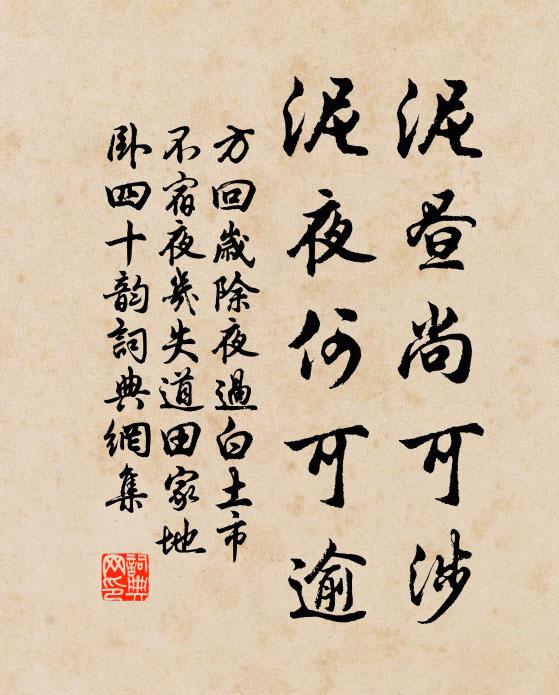 泥昼尚可涉
泥夜何可逾
方回歲除夜過白土市
不宿夜幾失道田家地
卧四十韵詞典網集
詞典网印